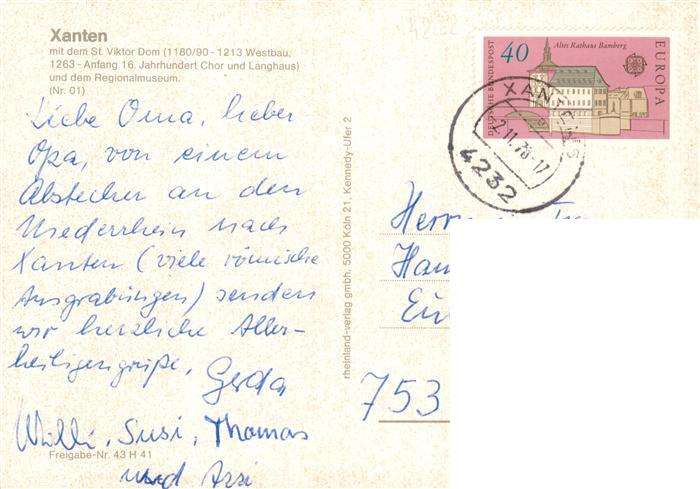 Xanten
mit dem St. Viktor Dom (1180/90 - 1213 Westbau,
1263 - Anfang 16. Jahrhundert Chor und Langhaus)
und dem Regionalmuseum.
(Nr. 01)
Liebe Oma, lieber
Opa, von einem
Abstecher an den
Niederrhein nach
Xanten (viele römische
Ausgrabungen) senden
wir herzliche Aller-
heiligengrüße,
Gerda
Willi, Susi, Thomas
und
Freigabe-Nr. 43 H 41
rheinland-verlag gmbh. 5000 Köln 21, Kennedy-Ufer 2
4232
DEUTSCHE BUNDESPOST
40
Altes Rathaus Bamberg
EUROPA
XANTEN
2.11.78-17
4232
753